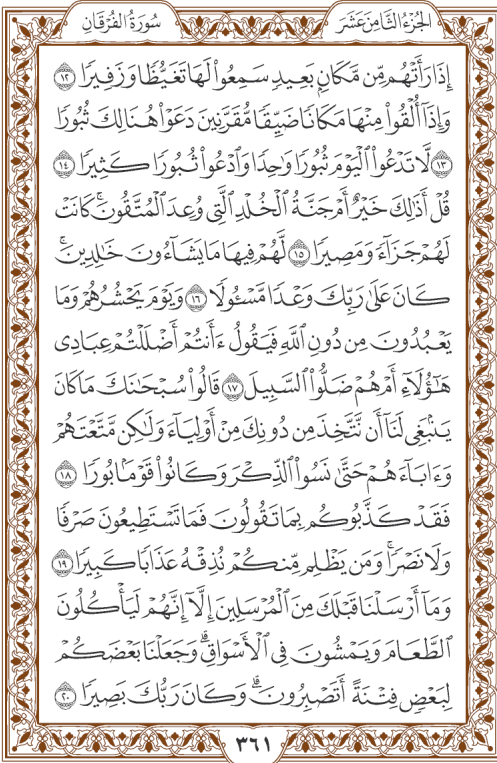 سُورَةُ الفُرْقَانِ
الجُزْءُ الثَّامِنَ عَشَرَ
إِذَا رَأَتْهُم مِّن مَّكَانِۭ بَعِيدٖ سَمِعُواْ لَهَا تَغَيُّظٗا وَزَفِيرٗا ١٢
وَإِذَآ أُلۡقُواْ مِنۡهَا مَكَانٗا ضَيِّقٗا مُّقَرَّنِينَ دَعَوۡاْ هُنَالِكَ ثُبُورٗا
١٣ لَّا تَدۡعُواْ ٱلۡيَوۡمَ ثُبُورٗا وَٰحِدٗا وَٱدۡعُواْ ثُبُورٗا كَثِيرٗا ١٤
قُلۡ أَذَٰلِكَ خَيۡرٌ أَمۡ جَنَّةُ ٱلۡخُلۡدِ ٱلَّتِي وُعِدَ ٱلۡمُتَّقُونَۚ كَانَتۡ
لَهُمۡ جَزَآءٗ وَمَصِيرٗا ١٥ لَّهُمۡ فِيهَا مَا يَشَآءُونَ خَٰلِدِينَۚ
كَانَ عَلَىٰ رَبِّكَ وَعۡدٗا مَّسۡـُٔولٗا ١٦ وَيَوۡمَ يَحۡشُرُهُمۡ وَمَا
يَعۡبُدُونَ مِن دُونِ ٱللَّهِ فَيَقُولُ ءَأَنتُمۡ أَضۡلَلۡتُمۡ عِبَادِي
هَٰٓؤُلَآءِ أَمۡ هُمۡ ضَلُّواْ ٱلسَّبِيلَ ١٧ قَالُواْ سُبۡحَٰنَكَ مَا كَانَ
يَنۢبَغِي لَنَآ أَن نَّتَّخِذَ مِن دُونِكَ مِنۡ أَوۡلِيَآءَ وَلَٰكِن مَّتَّعۡتَهُمۡ
وَءَابَآءَهُمۡ حَتَّىٰ نَسُواْ ٱلذِّكۡرَ وَكَانُواْ قَوۡمَۢا بُورٗا ١٨
فَقَدۡ كَذَّبُوكُم بِمَا تَقُولُونَ فَمَا تَسۡتَطِيعُونَ صَرۡفٗا
وَلَا نَصۡرٗاۚ وَمَن يَظۡلِم مِّنكُمۡ نُذِقۡهُ عَذَابٗا كَبِيرٗا ١٩
وَمَآ أَرۡسَلۡنَا قَبۡلَكَ مِنَ ٱلۡمُرۡسَلِينَ إِلَّآ إِنَّهُمۡ لَيَأۡكُلُونَ
ٱلطَّعَامَ وَيَمۡشُونَ فِي ٱلۡأَسۡوَاقِۗ وَجَعَلۡنَا بَعۡضَكُمۡ
لِبَعۡضٖ فِتۡنَةً أَتَصۡبِرُونَۗ وَكَانَ رَبُّكَ بَصِيرٗا ٢٠
٣٦١